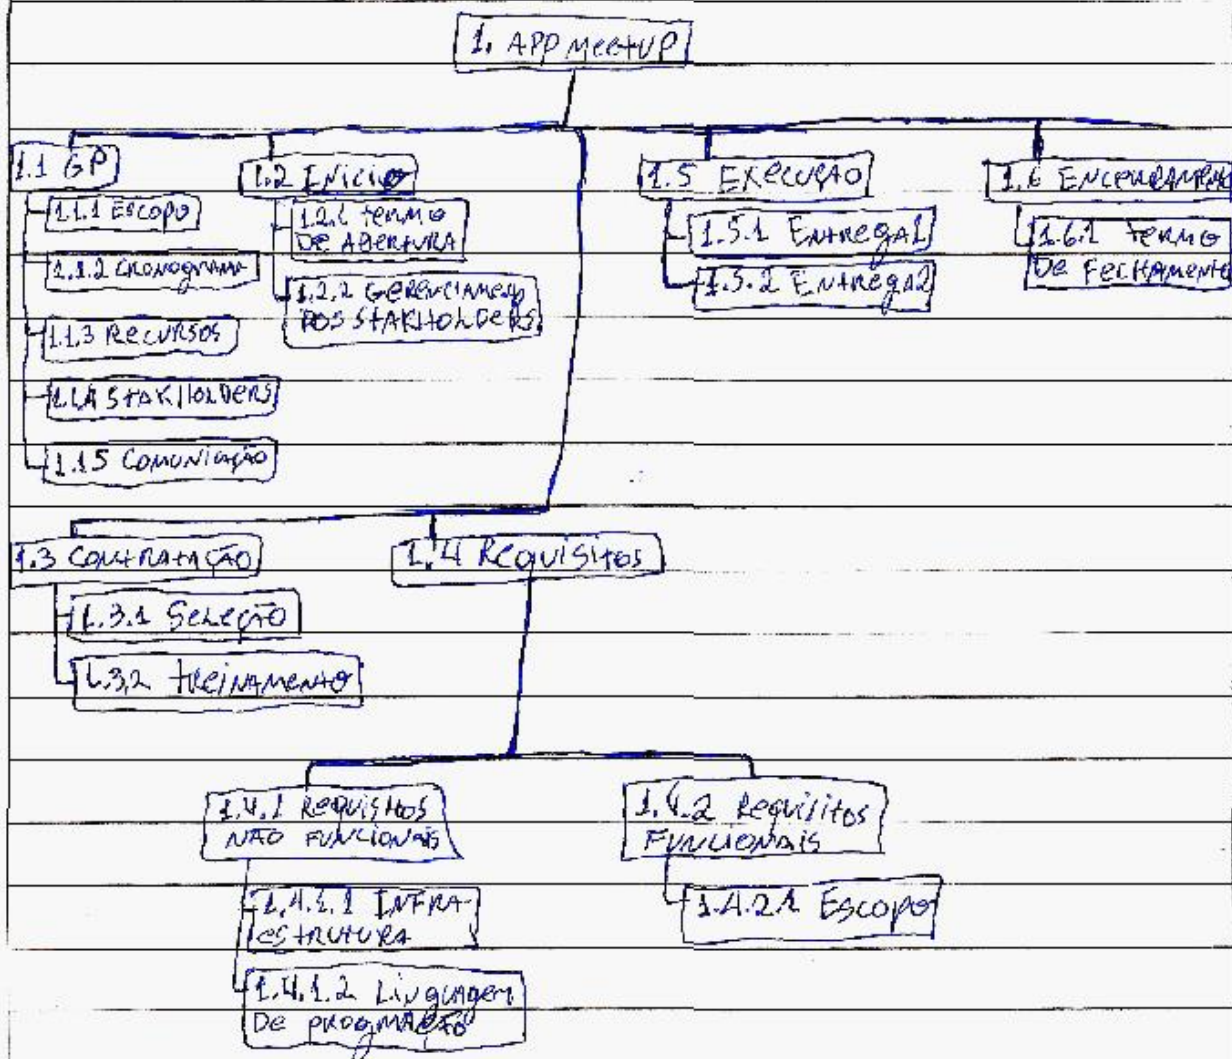 1. APP MeetUP
1.1 GP
1.1.1 Escopo
1.1.2 Cronograma
1.1.3 Recursos
1.1.4 StakHolders
1.1.5 Comunicação
1.2 Início
1.2.1 termo
De Abertura
1.2.2 Gerenciameno
DOS StakHolders
1.5 Execução
1.5.1 Entrega1
1.5.2 Entrega2
1.6 Encerramento
1.6.1 termo
De Fechamento
1.3 Contratação
1.3.1 Seleção
1.3.2 treinamento
1.4 Requisitos
1.4.1 Requisitos
NÃO FUNCIONAIS
1.4.1.1 INFRA-
estrutura
1.4.1.2 Linguagem
De progmação
1.4.2 Requisitos
FUNCIONAIS
1.4.2.1 Escopo